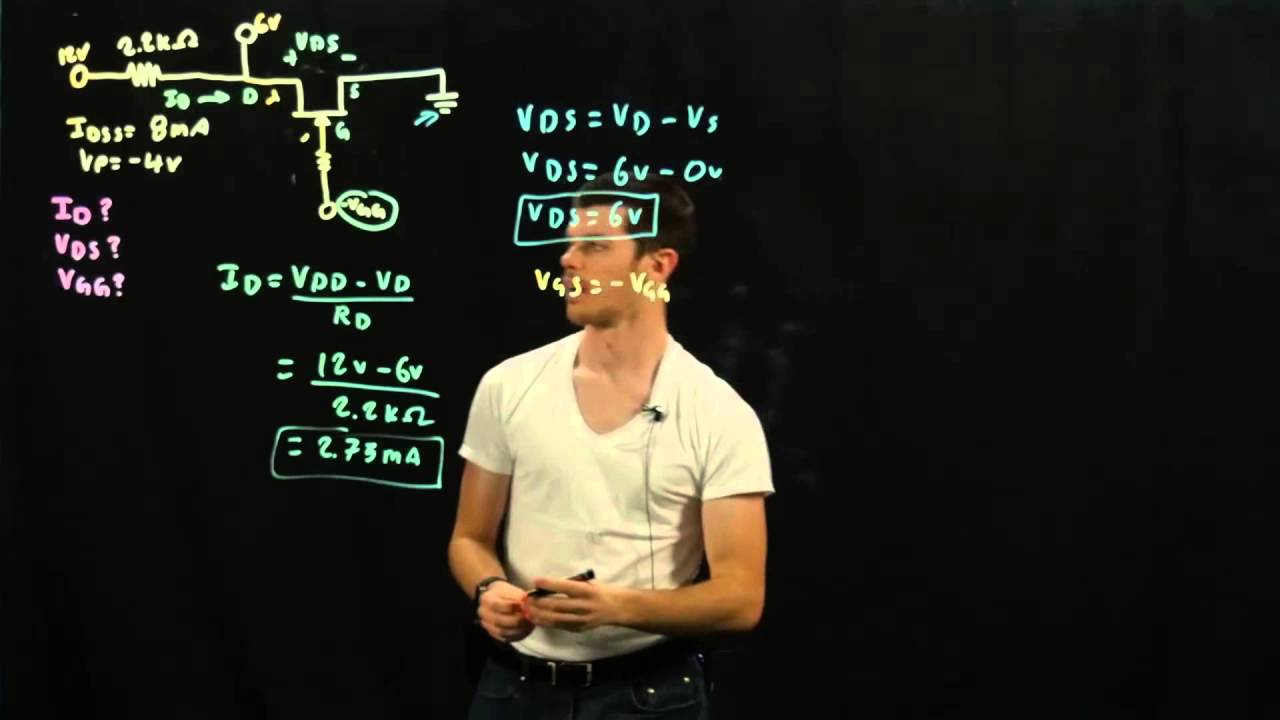 12V
2.2kΩ
6V
+ VDS -
ID → D
S
G
-VGG
IDSS = 8mA
VP = -4V
ID?
VDS?
VGG?
ID = VDD - VD
RD
= 12V - 6V
2.2kΩ
= 2.73mA
VDS = VD - VS
VDS = 6V - 0V
VDS = 6V
VGS = -VGG